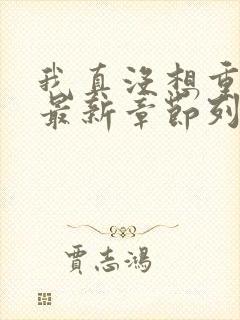 我真没想重
最新章节列
贾志鸿